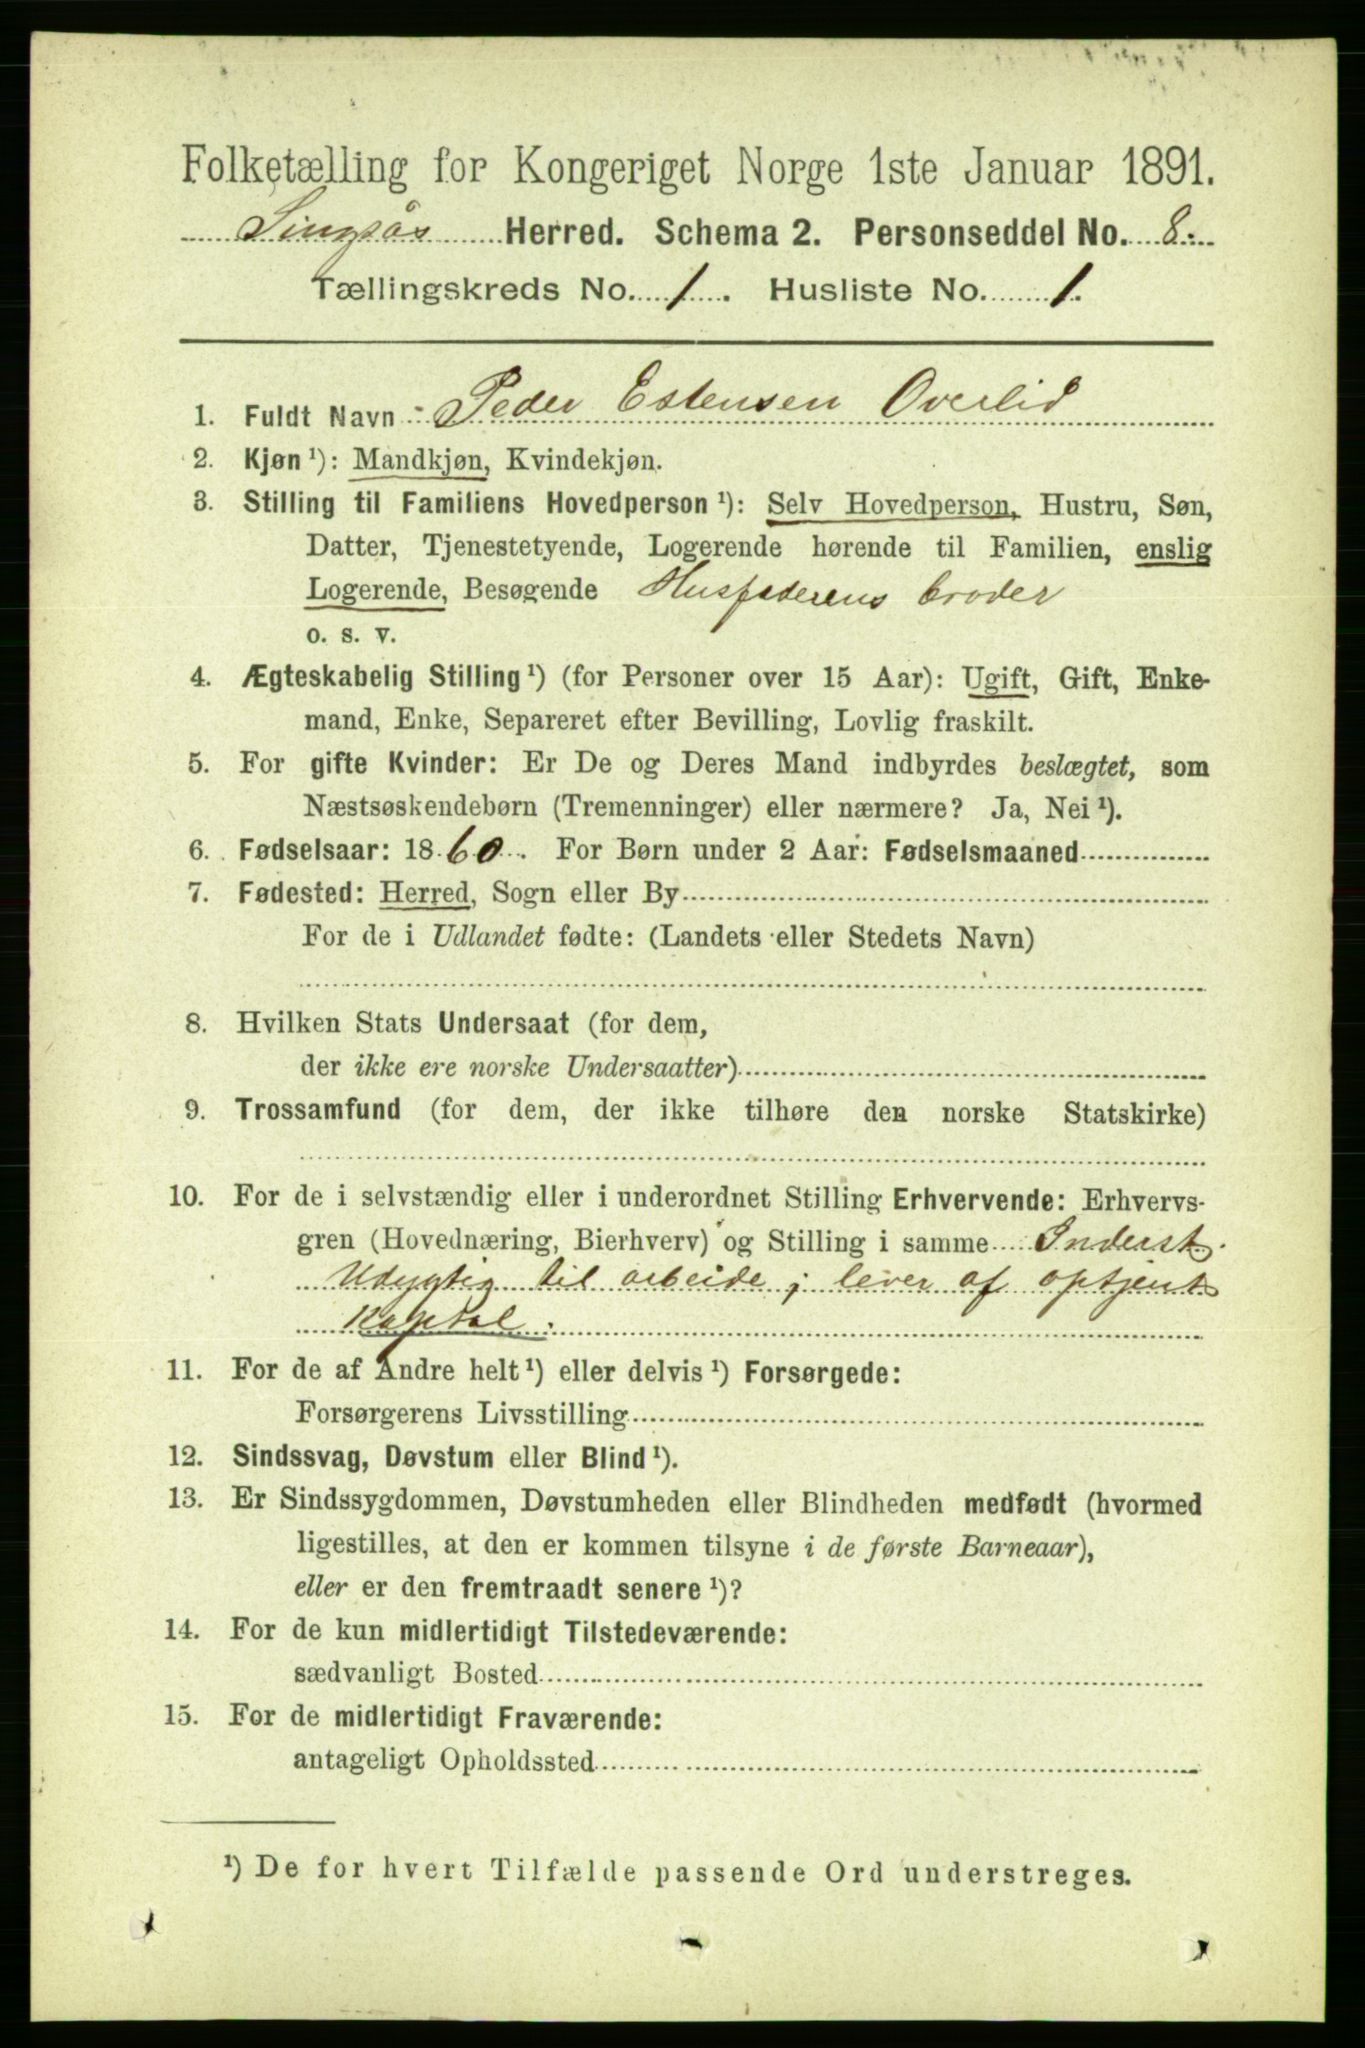 Folketælling for Kongeriget Norge 1ste Januar 1891.
Singsås Herred. Schema 2. Personseddel No. 8.
Tællingskreds No. 1. Husliste No. 1.
1. Fuldt Navn: Peder Estensen Overlid
2. Kjøn ¹): Mandkjøn, Kvindekjøn.
3. Stilling til Familiens Hovedperson ¹): Selv Hovedperson, Hustru, Søn,
Datter, Tjenestetyende, Logerende hørende til Familien, enslig
Logerende, Besøgende Husfaderens broder
o. s. v.
4. Ægteskabelig Stilling ¹) (for Personer over 15 Aar): Ugift, Gift, Enke-
mand, Enke, Separeret efter Bevilling, Lovlig fraskilt.
5. For gifte Kvinder: Er De og Deres Mand indbyrdes beslægtet, som
Næstsøskendebørn (Tremenninger) eller nærmere? Ja, Nei ¹).
6. Fødselsaar: 1860. For Børn under 2 Aar: Fødselsmaaned
7. Fødested: Herred, Sogn eller By
For de i Udlandet fødte: (Landets eller Stedets Navn)
8. Hvilken Stats Undersaat (for dem,
der ikke ere norske Undersaatter)
9. Trossamfund (for dem, der ikke tilhøre den norske Statskirke)
10. For de i selvstændig eller i underordnet Stilling Erhvervende: Erhvervs-
gren (Hovednæring, Bierhverv) og Stilling i samme Inderst.
Udygtig til arbeide; lever af optjent
Kaptal.
11. For de af Andre helt ¹) eller delvis ¹) Forsørgede:
Forsørgerens Livsstilling
12. Sindssvag, Døvstum eller Blind ¹).
13. Er Sindssygdommen, Døvstumheden eller Blindheden medfødt (hvormed
ligestilles, at den er kommen tilsyne i de første Barneaar),
eller er den fremtraadt senere ¹)?
14. For de kun midlertidigt Tilstedeværende:
sædvanligt Bosted
15. For de midlertidigt Fraværende:
antageligt Opholdssted
¹) De for hvert Tilfælde passende Ord understreges.